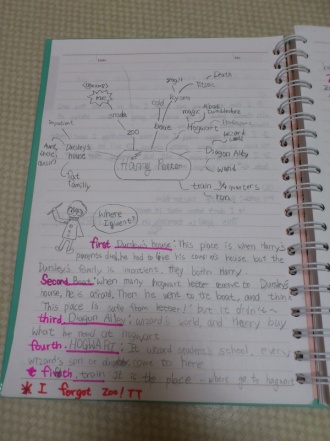 Death
small
Room
German
me
cold
Kycom
magic
Dumbledore
snake
zoo
boat
Hogwart
important
Dursley's
house
Diagon Alley
wand
fat
family
Harry Potter
train
9¾ quarters
ron
Where
I went?
first Dursley's house: This place is when Harry's
parents died, he had to live his cousin's house. but the
Dursley's family is important. they both Harry.
Second Boat: when many hogwart letter receive to Dursley's
house, He is afraid. Then he went to the boat, and think
This place is safe from letter! but it didn't~
third Diagon Alley: wizard's world, and Harry buy
what he need at hogwart
fourth. HOGWART: It wizard school, every
wizard's son or come to here.
fifth. train It is the place where go to hogwart
* I forgot Zoo! TT